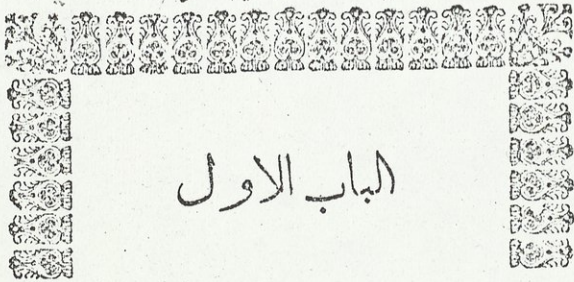 الباب الاول